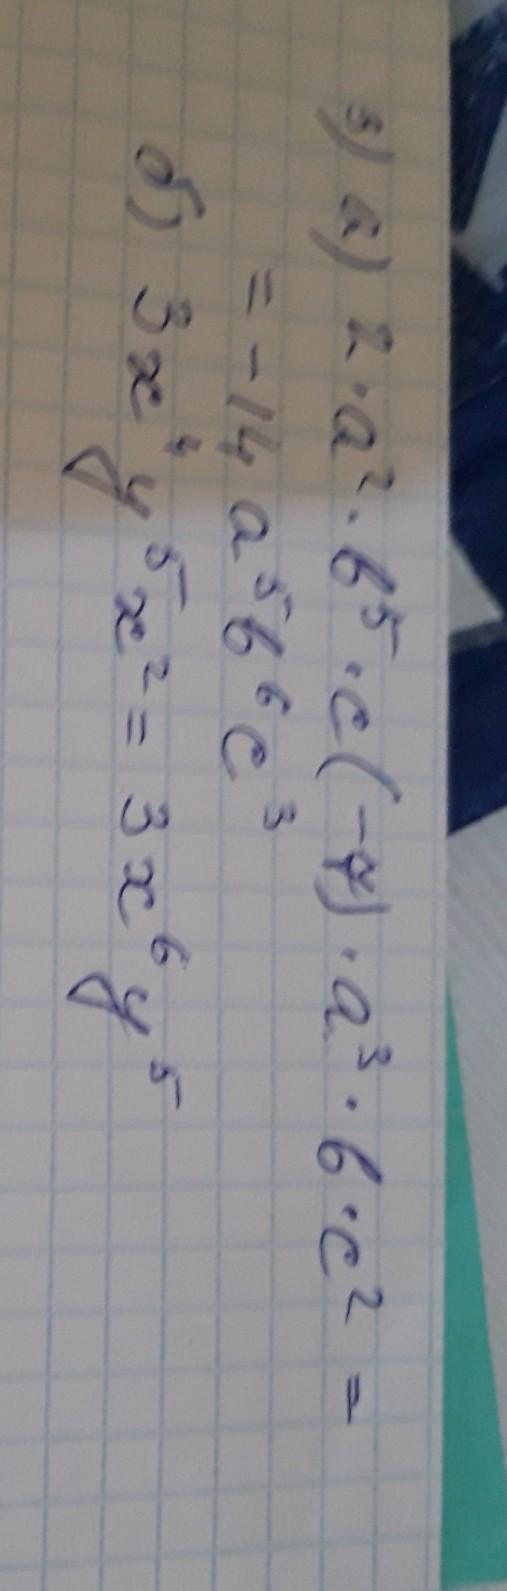 3) а) 2·a²·b⁵·c(-7)·a³·b·c² =
= -14a⁵b⁶c³
б) 3x⁴y⁵x² = 3x⁶y⁵